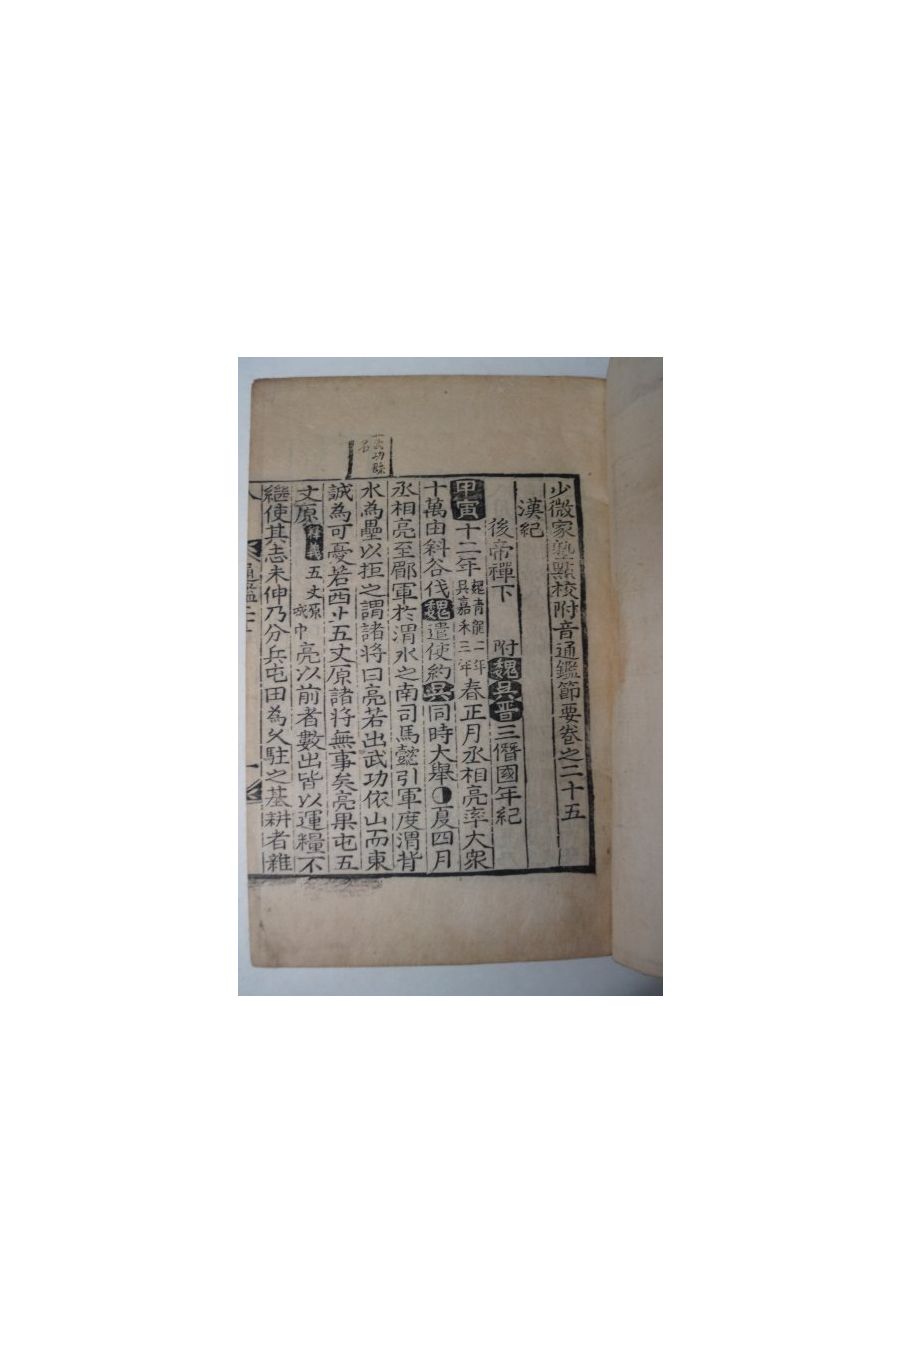 少微家塾點校附音通鑑節要卷之二十五
漢紀
後帝禪下 附魏吳晉三僭國年紀
甲寅十二年魏青龍二年吳嘉禾三年春正月丞相亮率大衆
十萬由斜谷伐魏遣使約吳同時大舉夏四月
丞相亮至郿軍於渭水之南司馬懿引軍度渭背
水為壘以拒之謂諸將曰亮若出武功依山而東
誠為可憂若西上五丈原諸將無事矣亮果屯五
丈原釋義五丈原亮以前者數出皆以運糧不
繼使其志未伸乃分兵屯田為久駐之基耕者雜
武功縣名